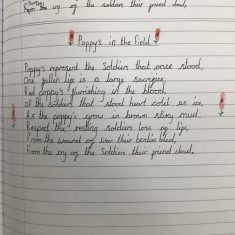 From the cry of the soldiers their friend dead,
Poppy's in the Field
Poppy's represent the Soldiers that once stood,
One fallen life is a large sacrifice,
Red poppy's flurishing in the blood,
of the soldiers that stood heart cold as ice,
As the poppy's grow in brown sticky mud,
Respect the resting soldiers loss of life,
From the wound of war their bodies bled,
From the cry of the Soldiers their friend dead.